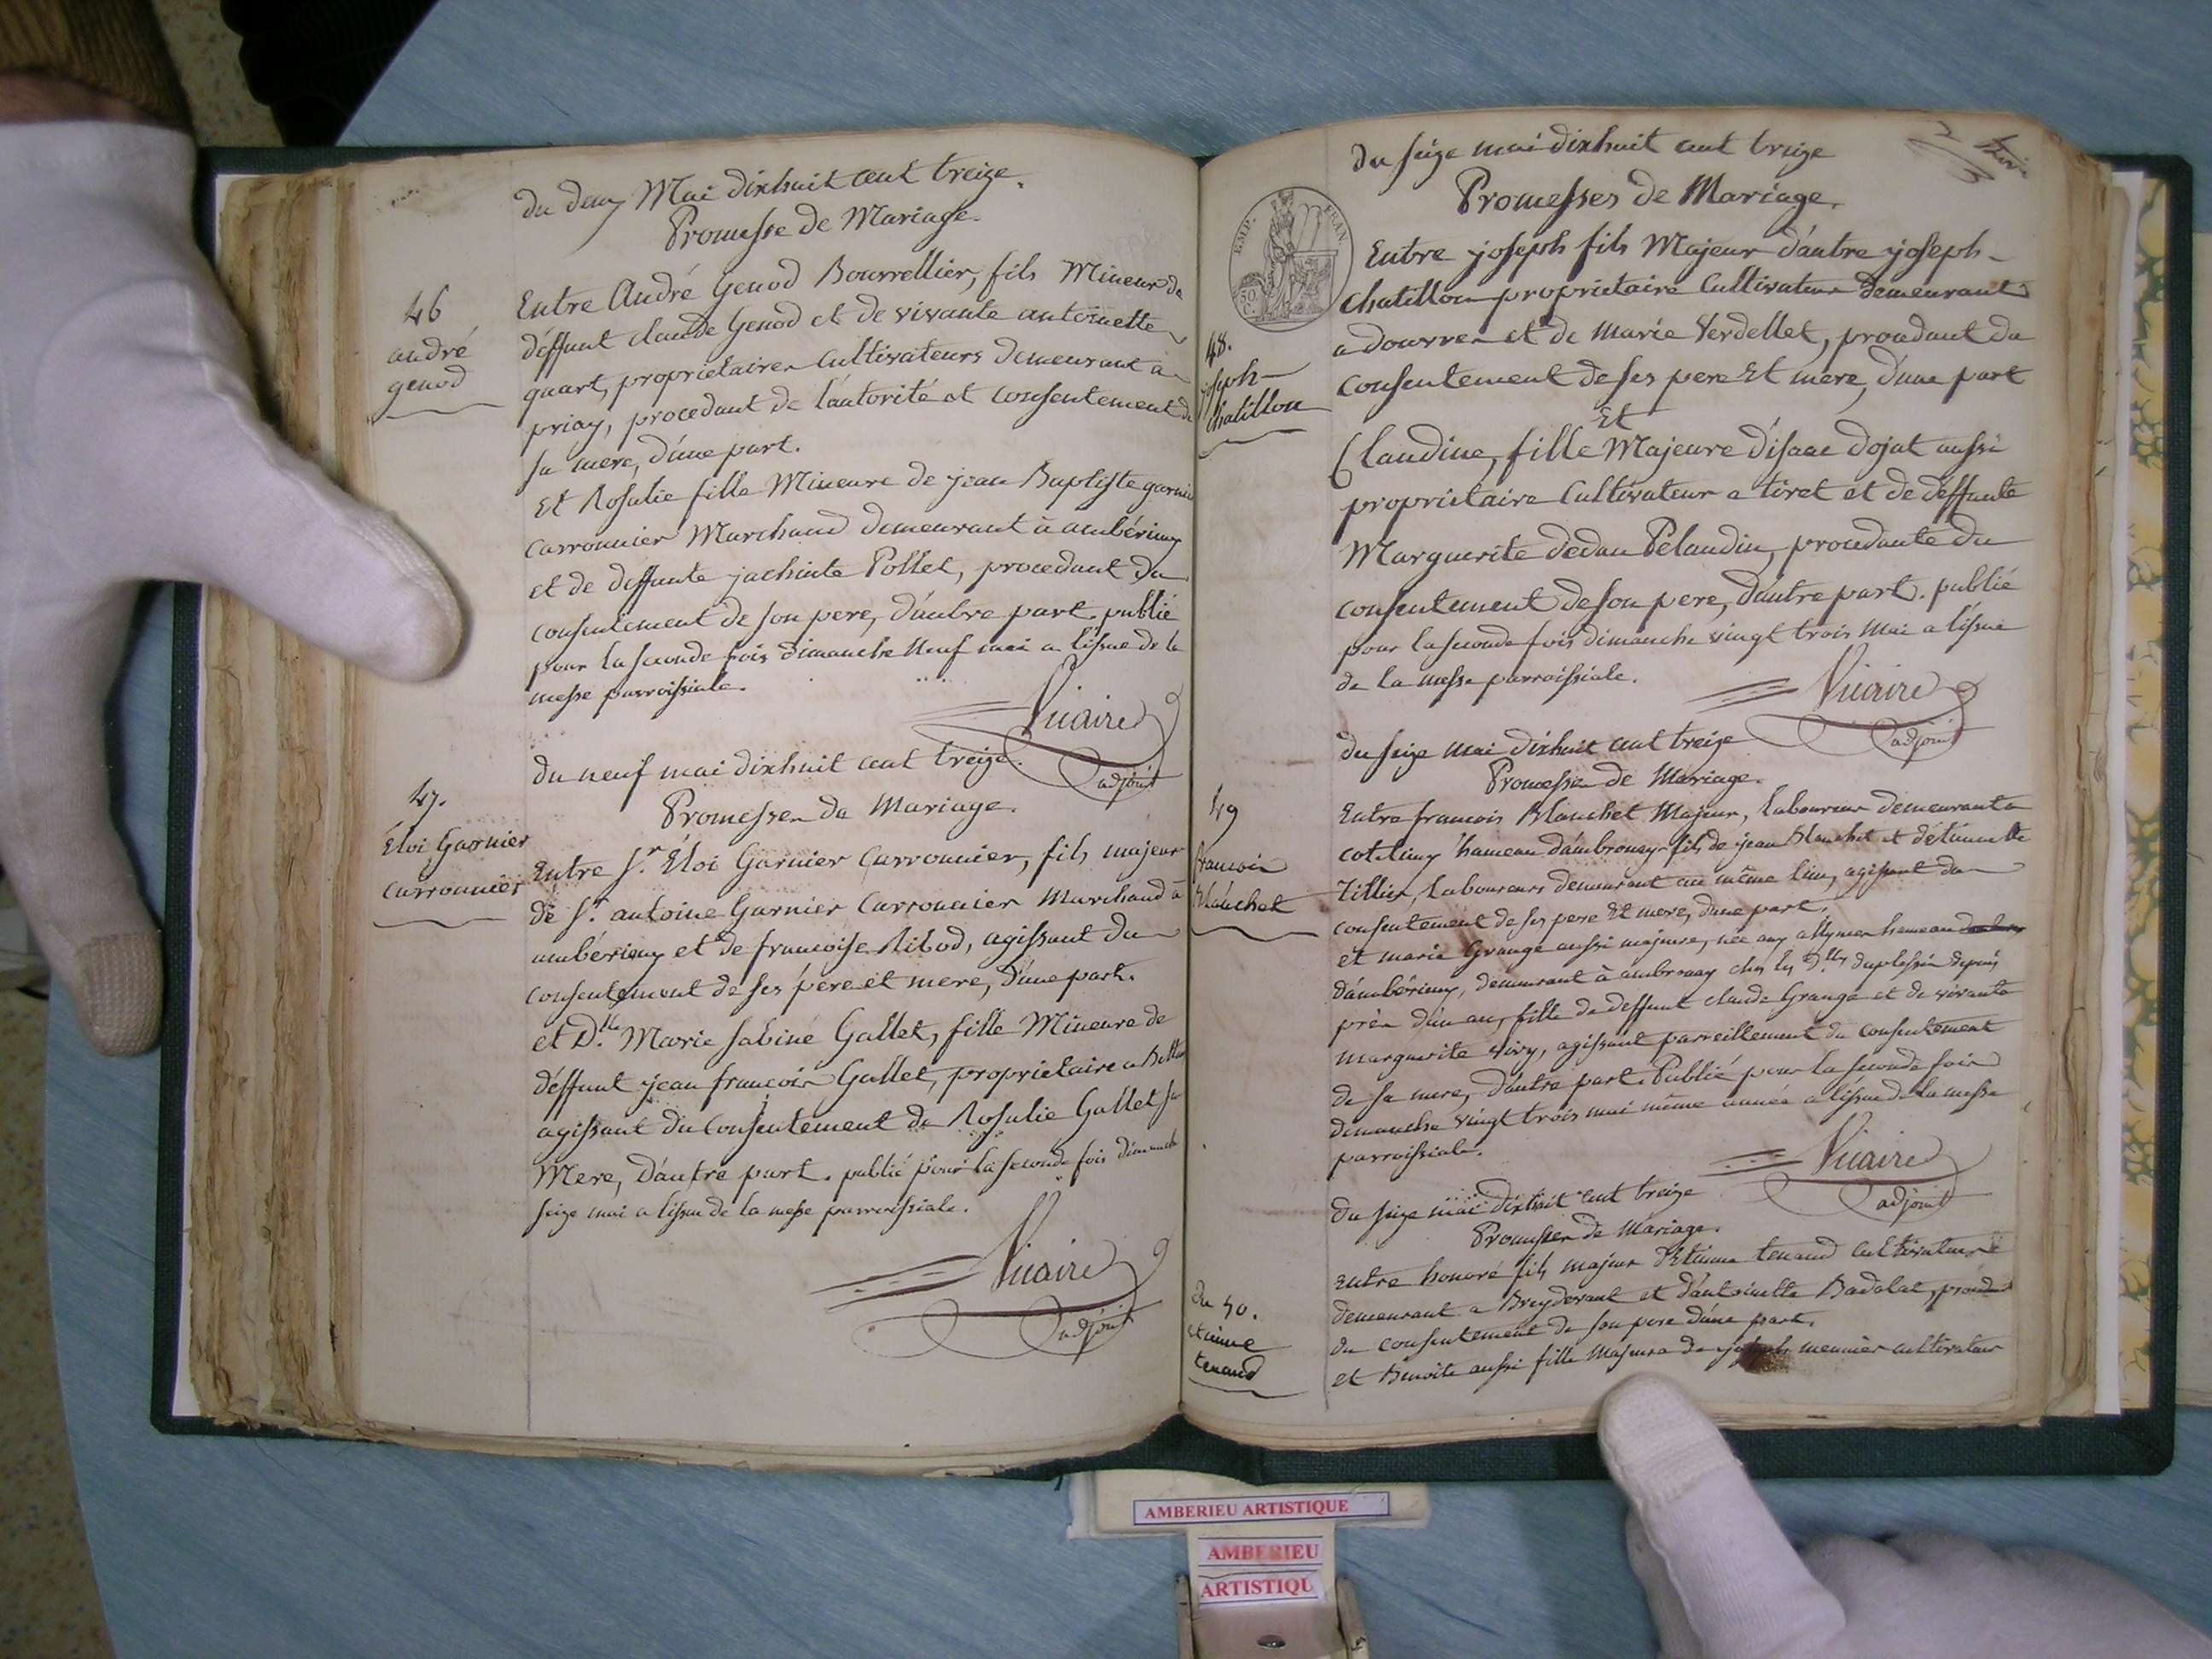 du deux Mai dixhuit cent treize.
Promesse de Mariage.
46
andré
genod
Entre André Genod Bourrellier, fils Mineur de
déffunt claude Genod et de vivante antoinette
quart, proprietaires Cultivateurs demeurant à
priay, procedant de l'autorité et consentement de
sa mere, d'une part.
Et Rosalie fille Mineure de jean Baptiste garnier
carronnier Marchand demeurant à ambérieux
et de deffunte jachinte Pollet, procedant du
consentement de son pere, d'autre part, publié
pour la seconde fois dimanche Neuf mai a l'issue de la
messe parroissiale.
Vicaire
adjoint
du neuf mai dixhuit cent treize.
Promesses de Mariage.
47.
Éloi Garnier
Carronnier
Entre Sr. Éloi Garnier Carronnier, fils majeur
de Sr. antoine Garnier Carronnier Marchand à
ambérieux et de francoise Ribod, agissant du
consentement de ses père et mere, d'une part.
et Dlle. Marie Sabine Gallet, fille Mineure de
déffunt jean francois Gallet, proprietaire a
agissant du consentement de Rosalie Gallet sa
Mere, d'autre part. publié pour la seconde fois dimanche
seize mai a l'issue de la messe parroissiale.
Vicaire
adjoint
du seize mai dixhuit cent treize
Promesses de Mariage.
EMP. FRAN.
48.
joseph
chatillon
Entre joseph fils Majeur d'autre joseph
chatillon proprietaire Cultivateur demeurant
a douvres et de Marie Verdellet, procedant du
consentement de ses pere Et mere, d'une part
Et
Claudine, fille Majeure d'isaac dojat aussi
proprietaire Cultivateur a tiret et de déffunte
Marguerite dedan Pelandin, procedante du
consentement de son pere, d'autre part. publié
pour la seconde fois dimanche vingt trois Mai a l'issue
de la messe parroissiale.
Vicaire
adjoint
du seize mai dixhuit cent treize
Promesses de Mariage.
49
francois
Blanchet
Entre francois Blanchet Majeur, laboureur demeurant a
cotelieux hameau d'ambronay fils de jean Blanchet et d'étiennette
Tillier, laboureurs demeurant au même lieu, agissant du
consentement de ses pere Et mere, d'une part,
et marie Grange aussi majeure, née aux allymes hameau
d'ambérieux, demeurant à ambronay chez les Dlles duplessis depuis
près d'un an, fille de deffunt claude Grange et de vivante
marguerite vivy, agissant pareillement du consentement
de sa mere, d'autre part. Publié pour la seconde fois
dimanche vingt trois mai même année a l'issue de la messe
parroissiale.
Vicaire
adjoint
du seize mai dixhuit cent treize
Promesses de Mariage.
du 50.
etienne
tenand
Entre honoré fils majeur d'Etienne tenand Cultivateur
demeurant a Breydevent et d'antoinette Badolat, procedant
du consentement de son pere d'une part.
et Benoite aussi fille Majeure de joseph meunier cultivateur
AMBERIEU ARTISTIQUE
AMBERIEU
ARTISTIQU